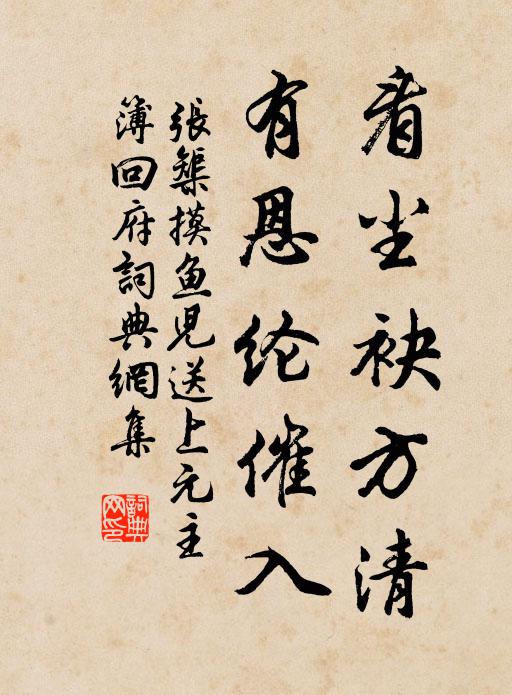 看尘袂方清
有恩纶催入
張榘摸鱼児送上元主
簿回府詞典網集
詞典网印